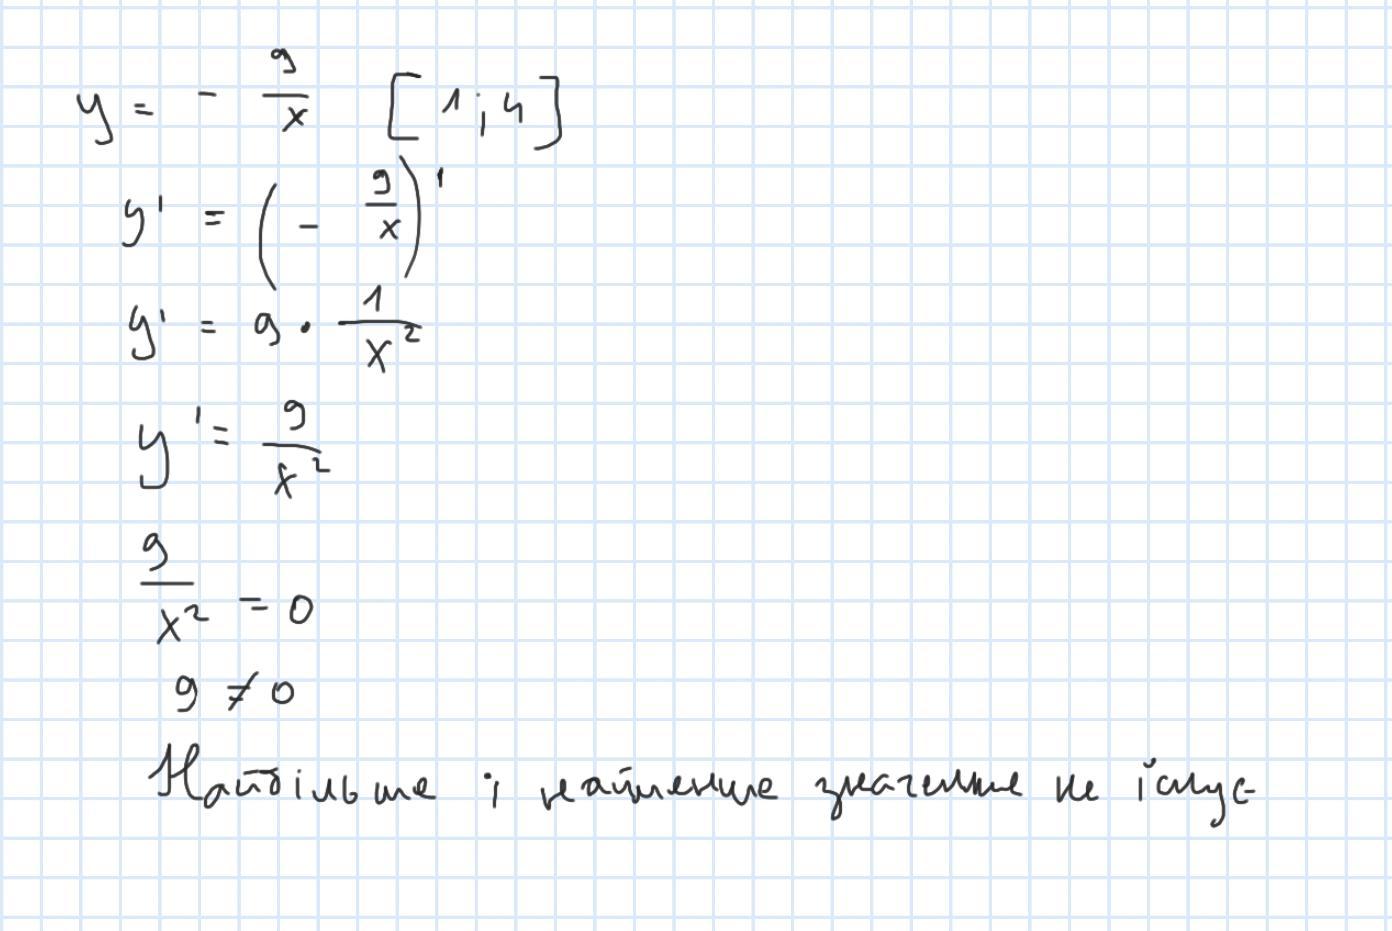 y = - 9/x [1; 4]
y' = (- 9/x)'
y' = 9 · 1/x²
y' = 9/x²
9/x² = 0
9 ≠ 0
Найбільше і найменше значення не існує